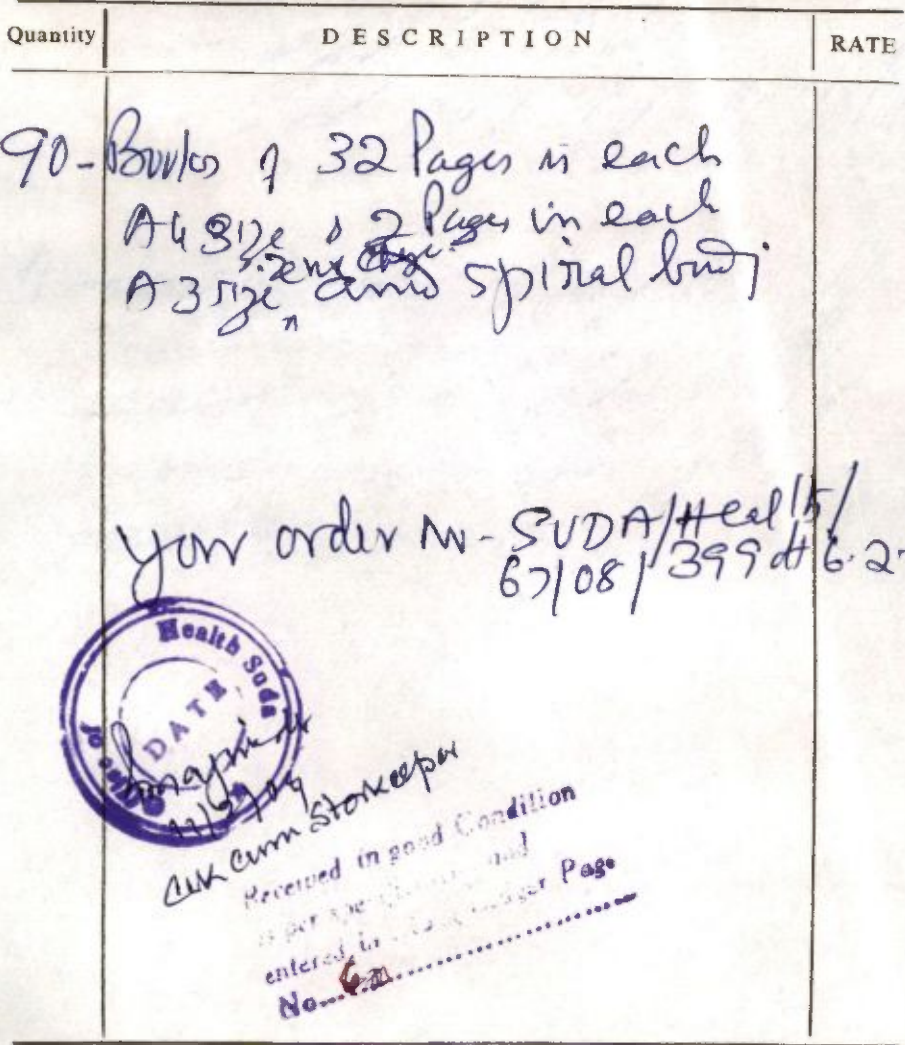 Quantity DESCRIPTION RATE
90 - Books of 32 Pages in each
A4 size & 2 Pages in each
A3 size xerox and spiral bindi
Your order No - SUDA/Health/
67/08/399 dt 6.2
Health Suda
DATE
11/2/09
Clerk cum Storekeeper
Received in good Condition
as per and
entered in Page
No.